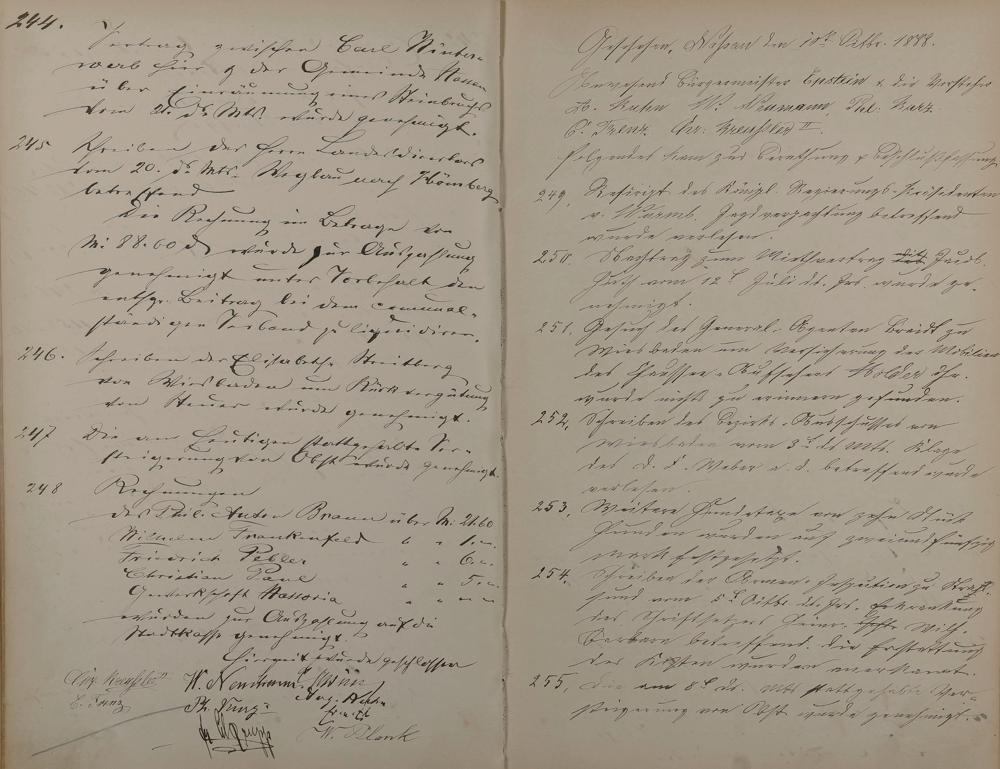 244.
Vertrag zwischen Carl Winter-
werb hier & der Gemeinde Nassau
über Einräumung eines Steinbruchs
vom 2. ds. Mts. wurde genehmigt.
245 Schreiben des Herrn Landesdirectors
vom 20. ds. Mts. Wegbau nach Hömberg
betreffend
Die Rechnung im Betrage von
M: 88.60 wurde zur Auszahlung
genehmigt unter Vorbehalt den
entspr. Beitrag bei dem communal-
ständigen Verband zu liquidiren.
246. Schreiben der Elisabethe Streitberg
von Wiesbaden um Rückvergütung
von Steuer wurde genehmigt.
247 Die am heutigen stattgehabte Ver-
steigerung von Obst wurde genehmigt.
248 Rechnungen
des Phil. Anton Braun über M: 21.60
Wilhelm Frankenfeld " "
Friedrich Pebler " " 6.
Christian Paul " " 5.
Gewerkschaft Nassovia " "
wurden zur Auszahlung auf die
Stadtkasse genehmigt.
Hiermit wurde geschlossen
Chr. Kreußler II W. Neumann
C. Trenz Ph. Kurz
W. Blank
Geschehen, Nassau den 10ten Octbr. 1888.
Anwesend Bürgermeister Epstein & die Vorsteher
H. Kuhn W. Neumann, Phil. Kurz
C. Trenz Chr: Kreußler II.
Folgendes kam zur Berathung & Beschlußfassung
249. Rescript des Königl. Regierungs-Präsidenten
v. Wurmb, Jagdverpachtung betreffend
wurde verlesen.
250. Nachtrag zum Miethvertrag Jacob
vom 12t Juli ds. Jrs. wurde ge-
nehmigt.
251. Gesuch des General-Agenten Breidt zu
Wiesbaden um Versicherung des Mobiliars
des Chaussee-Aufsehers Kolder
wurde nichts zu erinnern gefunden.
252. Schreiben des Bezirks-Ausschusses von
Wiesbaden vom 3t ds. Mts. Klage
des D. F. Weber a. d. betreffend wurde
verlesen.
253. Weitere Hundetaxe von zehn Stück
Hunden wurden auf zweiundfünfzig
Mark festgesetzt.
254. Schreiben der Armen-Deputation zu Straß-
burg vom 5t Octbr. ds. Jrs. Erkrankung
des Schriftsetzers Heinr. Wilh.
Barbara betreffend. Die Erstattung
der Kosten wurden anerkannt.
255. Die am 8t ds. Mts stattgehabte Ver-
steigerung von Obst wurde genehmigt.